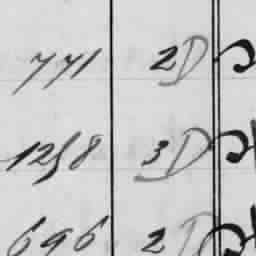 771 2D
1258 3D
696 2D